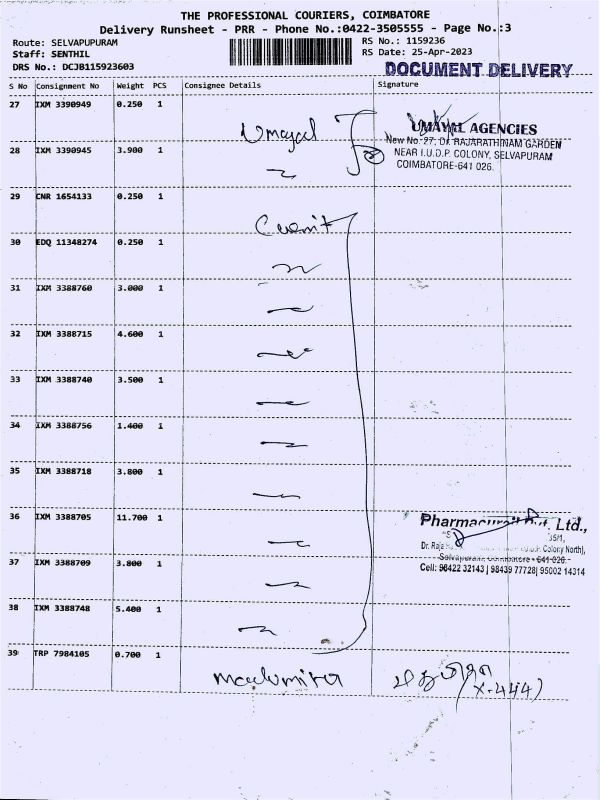 THE PROFESSIONAL COURIERS, COIMBATORE
Delivery Runsheet - PRR - Phone No.:0422-3505555 - Page No.:3
Route: SELVAPUPURAM
Staff: SENTHIL
DRS No.: DCJB115923603
RS No.: 1159236
RS Date: 25-Apr-2023
DOCUMENT DELIVERY
S No Consignment No Weight PCS Consignee Details Signature
27 IXM 3390949 0.250 1
Umayal
UMAYAL AGENCIES
New No. 27, Dr. RAJARATHINAM GARDEN
28 IXM 3390945 3.900 1
NEAR I.U.D.P. COLONY, SELVAPURAM
COIMBATORE-641 026.
29 CNR 1654133 0.250 1
30 EDQ 11348274 0.250 1
31 IXM 3388760 3.000 1
32 IXM 3388715 4.600 1
33 IXM 3388740 3.500 1
34 IXM 3388756 1.400 1
35 IXM 3388718 3.800 1
36 IXM 3388705 11.700 1
Pvt. Ltd.,
35/1,
Colony North),
Selvapuram, Coimbatore - 641 026.
37 IXM 3388709 3.800 1
Cell: 98422 32143 | 98439 77728| 95002 14314
38 IXM 3388748 5.400 1
39 TRP 7984105 0.700 1